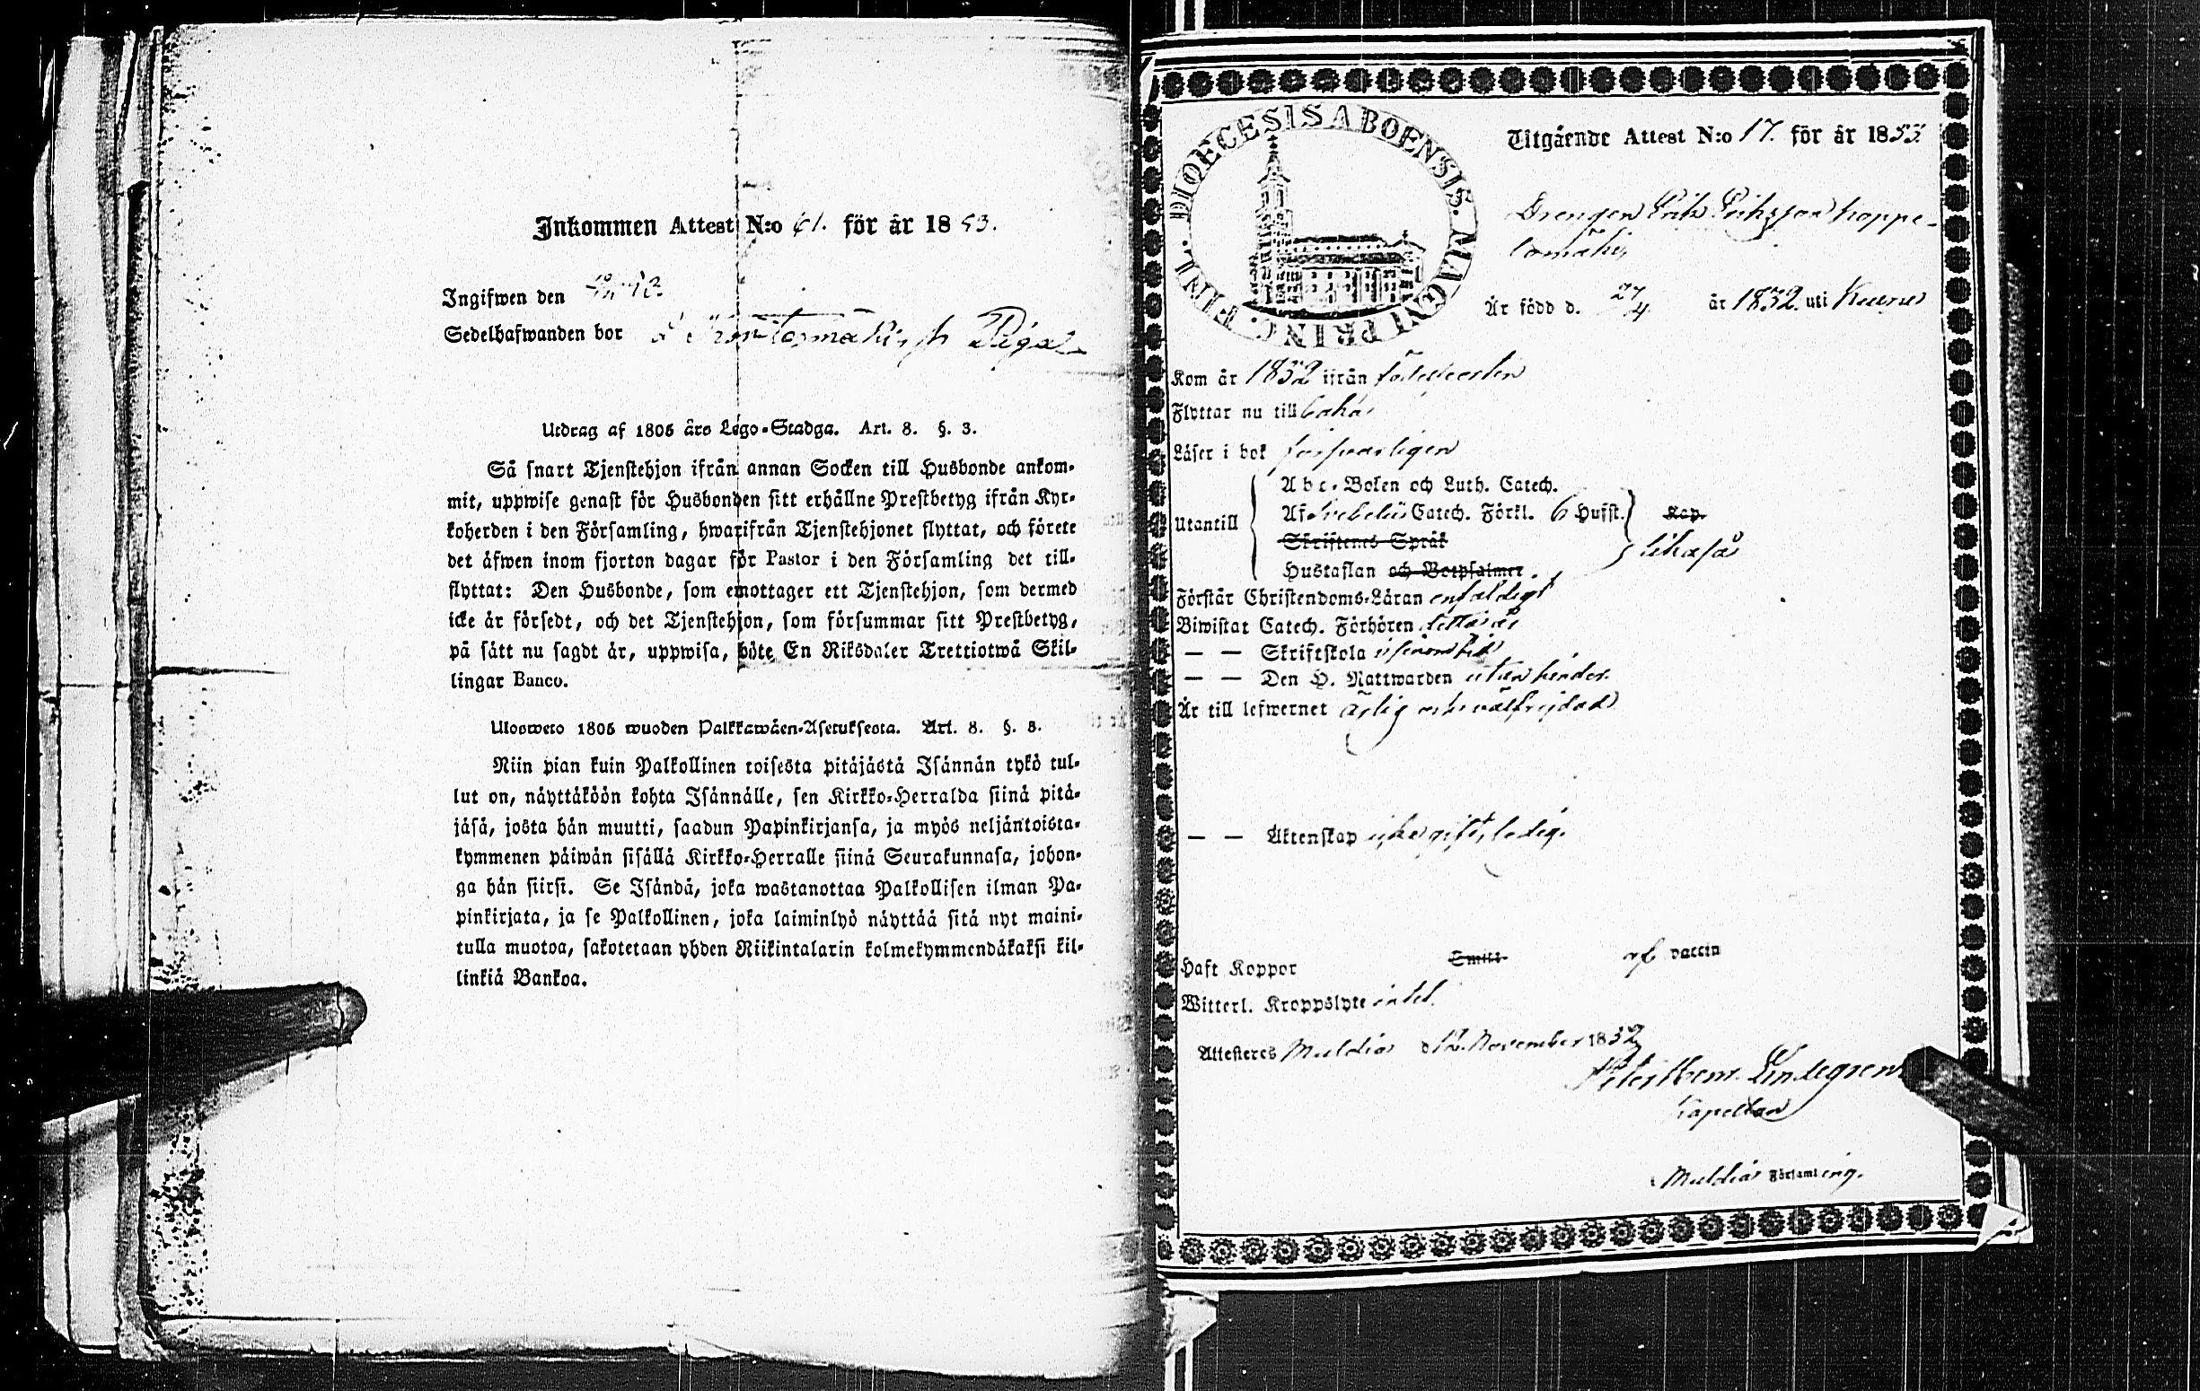 Inkommen Attest N:o 61. för år 1853.
Ingifwen den
Sedelhafwanden bor
Utdrag af 1805 års Lego-Stadga. Art. 8. §. 3.
Så snart Tjenstehjon ifrån annan Socken till Husbonde ankom-
mit, uppwise genast för Husbonden sitt erhållne Prestbetyg ifrån Kyr-
koherden i den Församling, hwarifrån Tjenstehjonet flyttat, och förete
det äfwen inom fjorton dagar för Pastor i den Församling det till-
flyttat: Den Husbonde, som emottager ett Tjenstehjon, som dermed
icke är försedt, och det Tjenstehjon, som försummar sitt Prestbetyg,
på sätt nu sagdt är, uppwisa, böte En Riksdaler Trettiotwå Skil-
lingar Banco.
Ulosweto 1805 wuoden Palkkawäen-Asetuksesta. Art. 8. §. 3.
Niin pian kuin Palkollinen toisesta pitäjästä Isännän tykö tul-
lut on, näyttäköön kohta Isännälle, sen Kirkko-Herralda siinä pitä-
jäsä, josta hän muutti, saadun Papinkirjansa, ja myös neljäntoista-
kymmenen päiwän sisällä Kirkko-Herralle siinä Seurakunnasa, johon-
ga hän siirsi. Se Isändä, joka wastanottaa Palkollisen ilman Pa-
pinkirjata, ja se Palkollinen, joka laiminlyö näyttää sitä nyt maini-
tulla muotoa, sakotetaan yhden Riikintalarin kolmekymmendäkaksi kil-
linkiä Bankoa.
DIOECESIS ABOENSIS. MAGNI PRINC. FINL.
Utgående Attest N:o 17. för år 1853.
Drengen Erik Eriksson Koppe-
lomäki,
Är född d. 27/4 år 1832. uti Keuru
Kom år 1852 ifrån födelseorten
Flyttar nu till
Läser i bok försvarligen
Abc-Boken och Luth. Catech.
Utantill Af Svebelii Catech. Förkl. 6 Hufst. Kap.
Skriftenes Språk likaså
Hustaflan och Botpsalmer.
Förstår Christendoms-Läran enfaldigt
Biwistat Catech. Förhören
— — Skriftskola
— — Den H. Nattwarden utan hinder.
Är till lefwernet ärlig och välfrejdad
— — Äktenskap icke gift, ledig.
Haft Koppor Smitt. af vaccin
Witterl. Kroppslyte intet.
Attesteres Muldia d 12. November 1852
Lindegren
Kapellan
Muldia Församling.